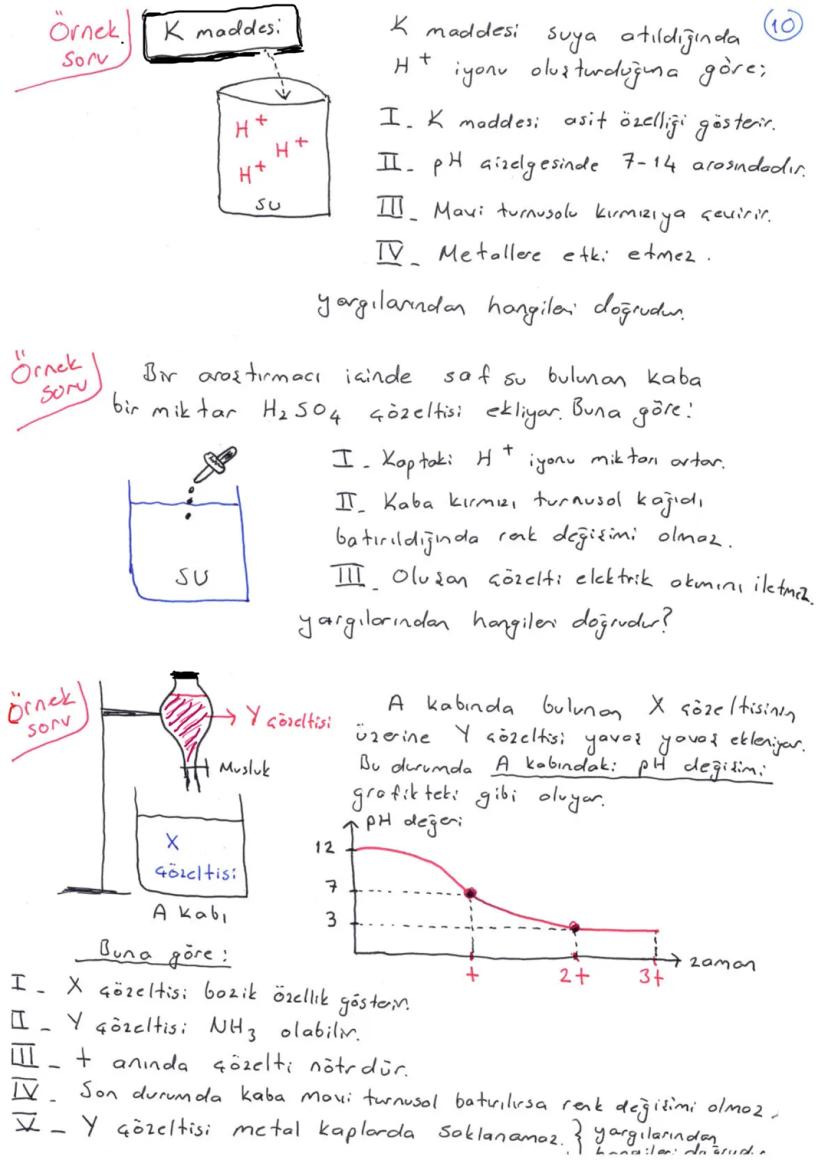 Örnek soru
K maddesi
H+
H+
H+
su
10
K maddesi suya atıldığında
H+ iyonu oluşturduğuna göre;
I. K maddesi asit özelliği gösterir.
II- pH çizelgesinde 7-14 arasındadır.
III- Mavi turnusolu kırmızıya çevirir.
IV- Metallere etki etmez.
yargılarından hangileri doğrudur.
Örnek soru
Bir araştırmacı içinde saf su bulunan kaba
bir miktar H2SO4 çözeltisi ekliyor. Buna göre:
SU
I- Kaptaki H+ iyonu miktarı artar.
II- Kaba kırmızı turnusol kağıdı
batırıldığında renk değişimi olmaz.
III- Oluşan çözelti elektrik akımını iletmez.
yargılarından hangileri doğrudur?
Örnek soru
Y çözeltisi
Musluk
X
çözeltisi
A kabı
A kabında bulunan X çözeltisinin
üzerine Y çözeltisi yavaş yavaş ekleniyor.
Bu durumda A kabındaki pH değişimi
grafikteki gibi oluyor.
pH değeri
12
7
3
t 2t 3t
zaman
Buna göre:
I- X çözeltisi bazik özellik gösterir.
II- Y çözeltisi NH3 olabilir.
III- t anında çözelti nötrdür.
IV- Son durumda kaba mavi turnusol batırılırsa renk değişimi olmaz.
V- Y çözeltisi metal kaplarda saklanamaz. } yargılarından
hangileri doğrudur